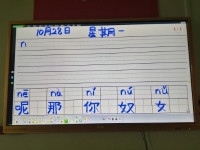 10月28日 星期一
n
nē nà nǐ nú nǚ
呢 那 你 奴 女